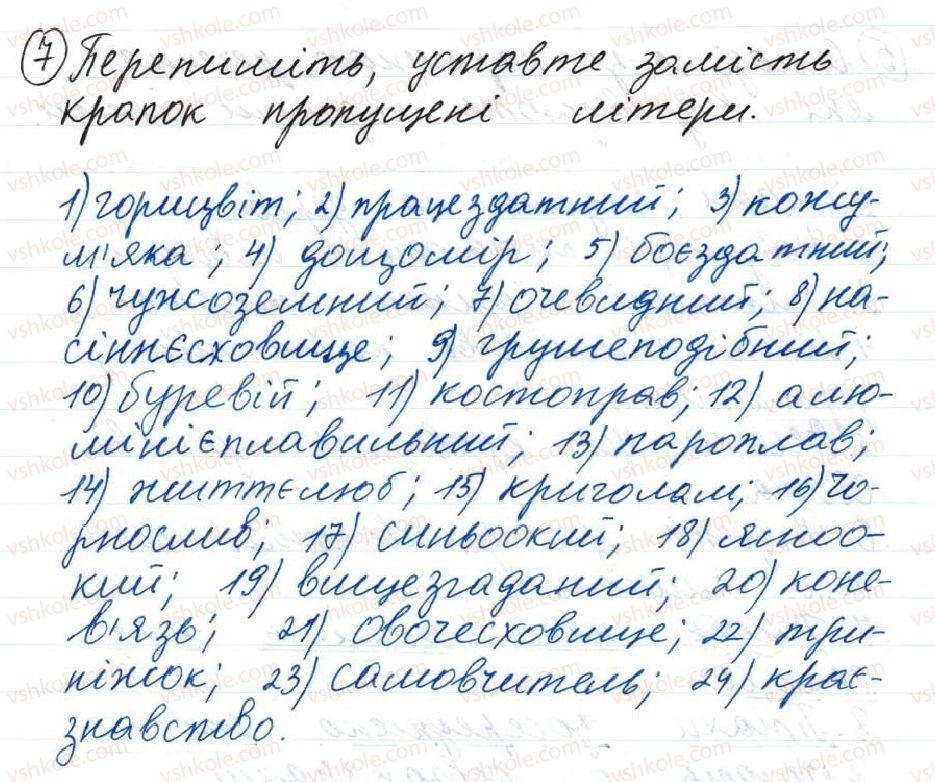 7 Перепишіть, уставте замість
крапок пропущені літери.
1) горицвіт; 2) працездатний; 3) кожу-
м'яка; 4) дощомір; 5) боєздатний;
6) чужоземний; 7) очевидний; 8) на-
сіннєсховище; 9) грушеподібний;
10) буревій; 11) костоправ; 12) алю-
мінієплавильний; 13) пароплав;
14) життєлюб; 15) криголам; 16) чо-
рнослив; 17) синьоокий; 18) ясноо-
кий; 19) вищезгаданий; 20) коне-
в'язь; 21) овочесховище; 22) три-
ніжок; 23) самовчитель; 24) крає-
знавство.